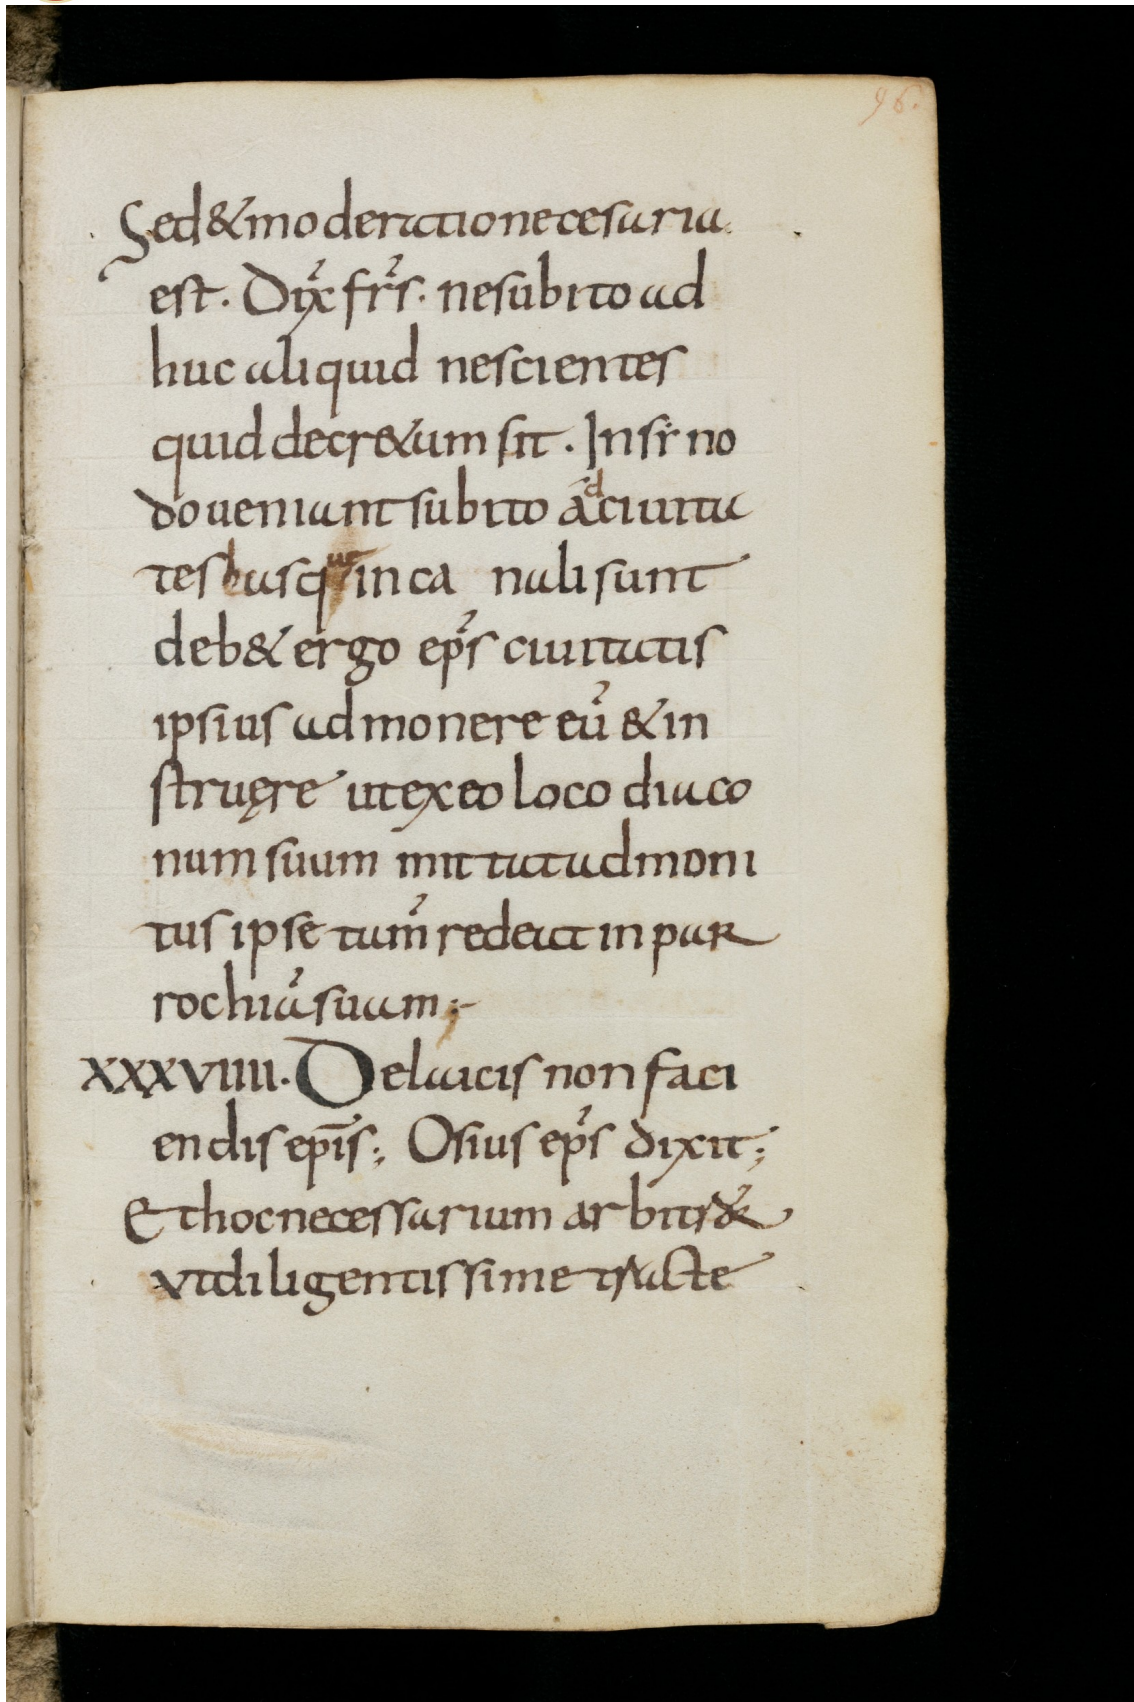 96.
Sed & moderatio necesaria
est. Dix̉ fr̉s. ne subito ad
huc aliquid nescientes
quid decr&um sit. In sr̄no
do ueniunt subito ad ciuita
tes in ca nali sunt
deb& ergo ep̉s ciuitatis
ipsius admonere eu̓ & in
struęre ut ex eo loco diaco
num suum mittat ut admoni
tus ipse tam̉ redeat in par
rochia̓ suam;
XXXVIIII. De laicis non faci
endis epīs; Osius ep̉s dixit;
Et hoc necessarium arbitr&̉
ut diligentissime tracte